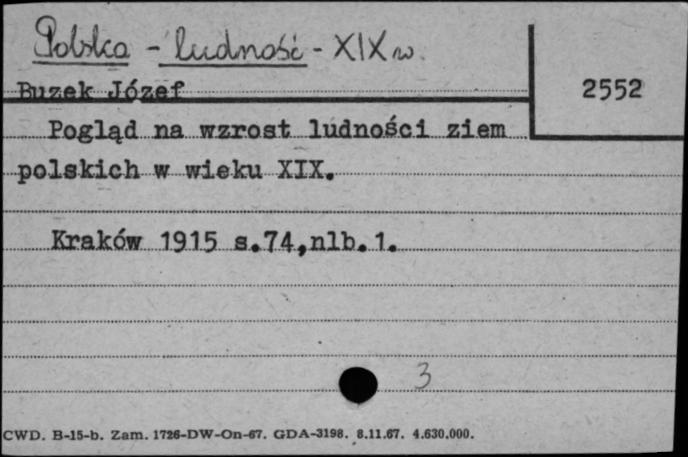 Polska - ludność - XIX w.
Buzek Józef
2552
Pogląd na wzrost ludności ziem
polskich w wieku XIX.
Kraków 1915 s.74,nlb.1.
3
CWD. B-15-b. Zam. 1726-DW-On-67. GDA-3198. 8.11.67. 4.630.000.